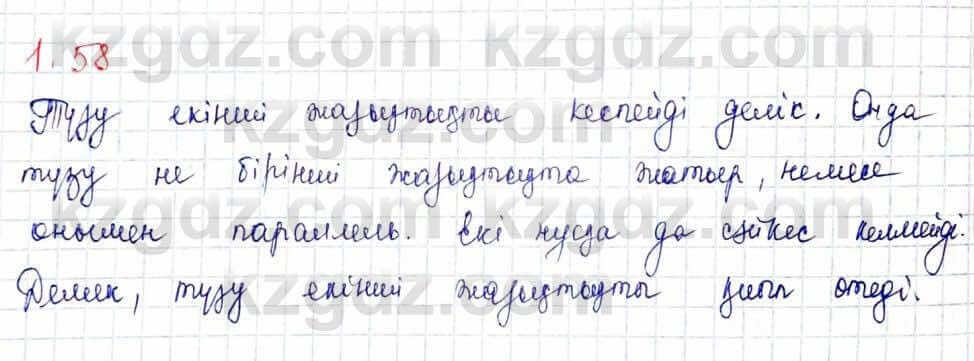 1.58
Түзу екінші жазықтықты кеспейді делік. Онда
түзу не бірінші жазықтықта жатыр, немесе
онымен параллель. Екі нұсқа да сәйкес келмейді.
Демек, түзу екінші жазықтықты қиып өтеді.
kzgdz.com